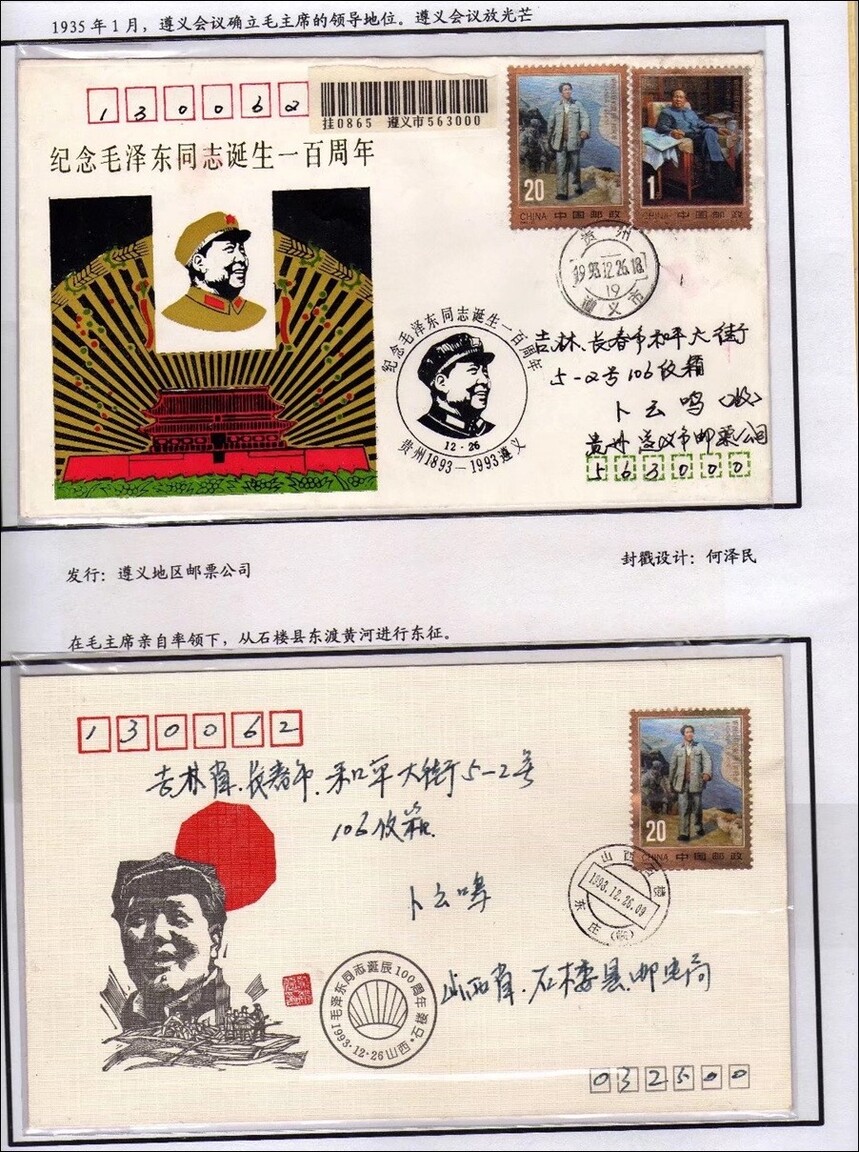 1935年1月，遵义会议确立毛主席的领导地位。遵义会议放光芒
130062
挂0865 遵义市563000
纪念毛泽东同志诞生一百周年
20
CHINA 中国邮政
1
CHINA 中国邮政
贵州
1993.12.26.18
19
遵义市
纪念毛泽东同志诞生一百周年
12·26
贵州1893－1993遵义
吉林.长春市和平大街
5-2号106信箱
卜云鸣（收）
贵州遵义市邮票公司
563000
发行：遵义地区邮票公司
封戳设计：何泽民
在毛主席亲自率领下，从石楼县东渡黄河进行东征。
130062
吉林省.长春市.和平大街5-2号
106信箱.
卜云鸣
20
CHINA 中国邮政
山西石楼
1993.12.26.09
东庄（临）
毛泽东同志诞辰100周年
1993·12·26山西·石楼
山西省.石楼县.邮电局
032500